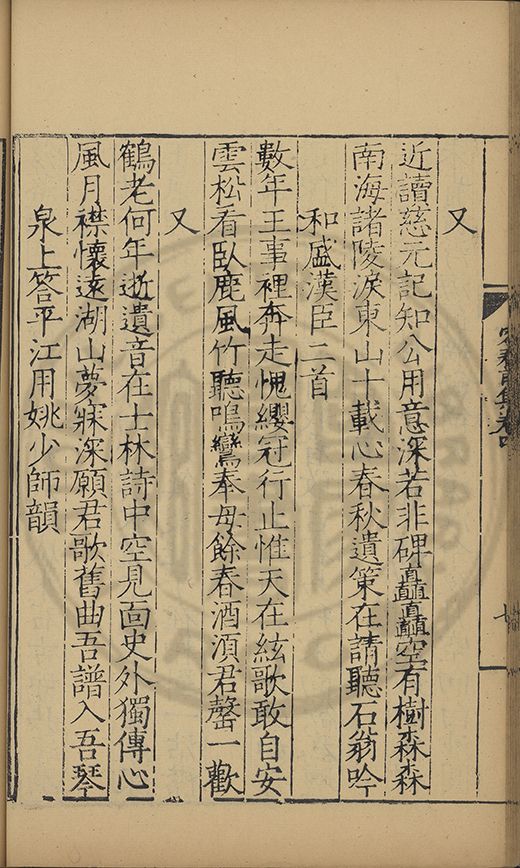 又
近讀慈元記知公用意深若非碑矗矗空有樹森森
南海諸陵淚東山十載心春秋遺策在請聽石翁吟
和盛漢臣二首
數年王事裡奔走愧纓冠行止惟天在絃歌敢自安
雲松看臥鹿風竹聽鳴鸞奉母餘春酒湏君罄一歡
又
鶴老何年逝遺音在士林詩中空見面史外獨傳心
風月襟懷遠湖山夢寐深願君歌舊曲吾譜入吾琴
泉上答平江用姚少師韻